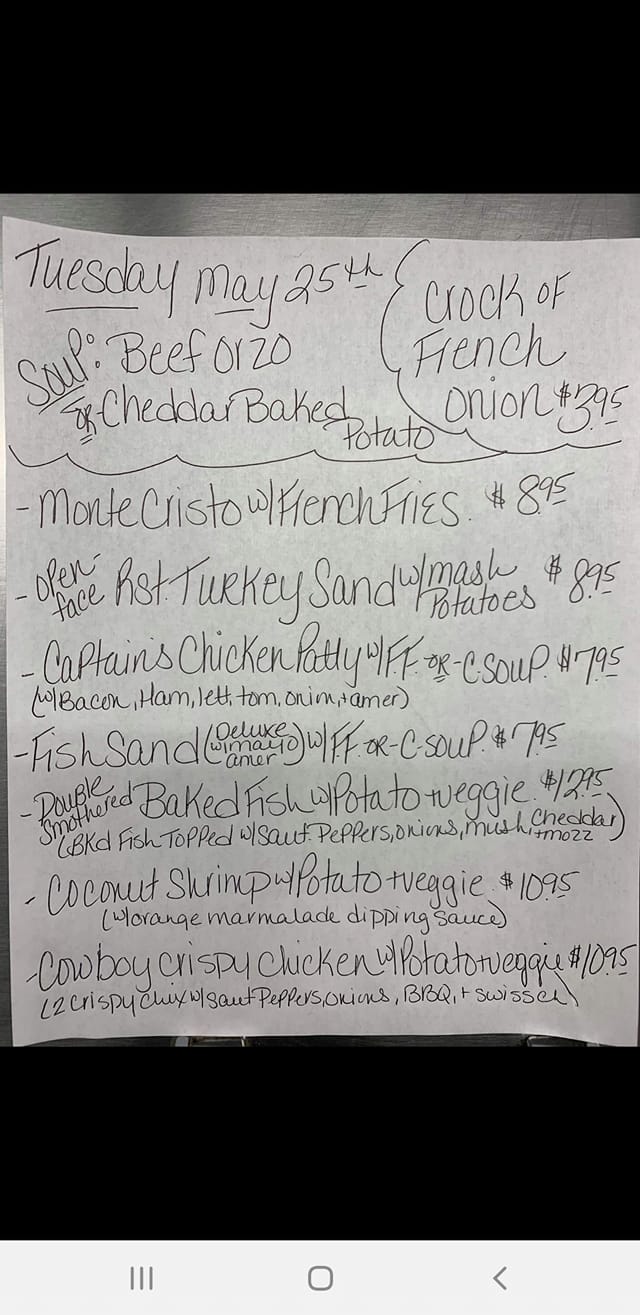 Tuesday May 25th
Crock of
French
Onion $3.95
Soup: Beef Orzo
-or- Cheddar Baked
Potato
- Monte Cristo w/French Fries. $8.95
- Open-face Rst. Turkey Sand w/mash Potatoes $8.95
- Captain's Chicken Patty w/FF-or-C-Soup. $7.95
(w/Bacon, Ham, lett, tom, onion, + amer)
- Fish Sand (Deluxe w/mayo amer) w/FF-or-C-Soup. $7.95
- Double Smothered Baked Fish w/Potato + veggie. $12.95
(BKd Fish Topped w/Saut. Peppers, onions, mush, Cheddar + mozz)
- Coconut Shrimp w/Potato + veggie. $10.95
(w/orange marmalade dipping sauce)
- Cowboy Crispy Chicken w/Potato + veggie $10.95
(2 crispy chix w/saut Peppers, onions, BBQ, + swissch)